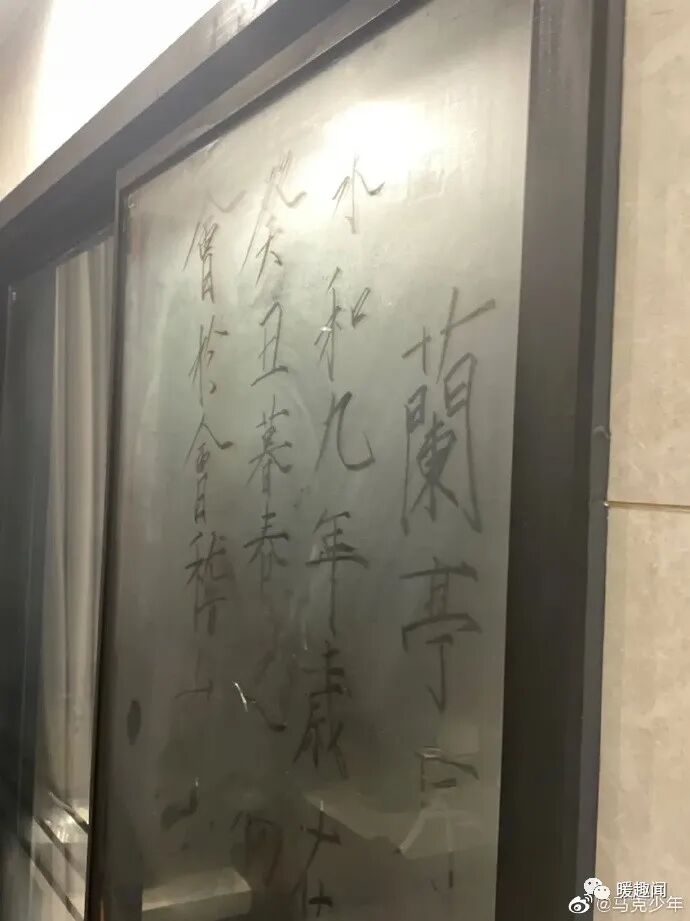 蘭亭序
永和九年歲在
癸丑暮春之初
會於會稽山
暖趣闻
@马克少年